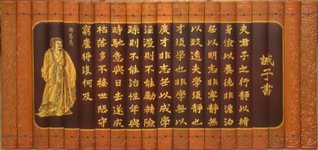 誡子書
夫君子之行靜以修
身儉以養德非澹泊
無以明志非寧靜無
以致遠夫學須靜也
才須學也非學無以
廣才非志無以成學
淫漫則不能勵精險
躁則不能治性年與
時馳意與日去遂成
枯落多不接世悲守
窮廬將復何及